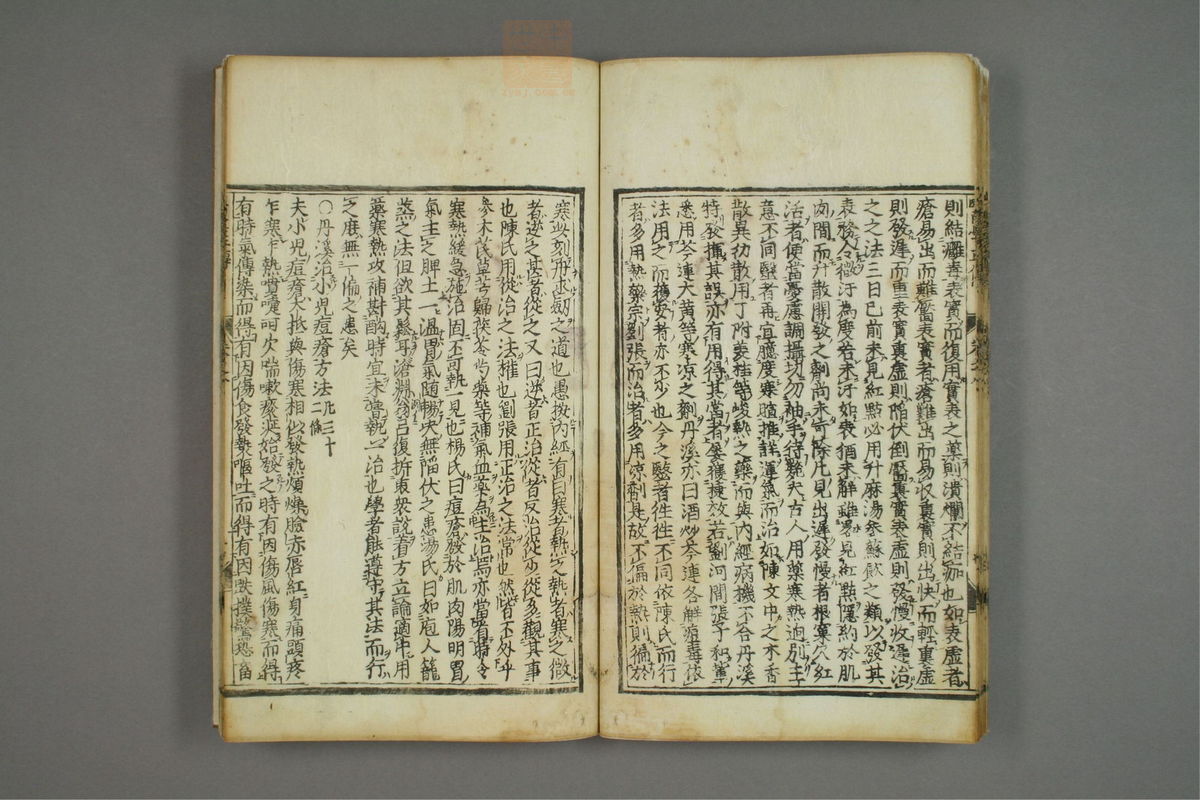 則結癰毒表實而復用實表之藥則潰爛不結痂也如表虛者
瘡易出而難靨表實者瘡難出而易收裏實則出快而輕裏虛
則發遲而重表實裏虛則陷伏倒靨裏實表虛則發慢收遲治
之之法三日已前未見紅點必用升麻湯參蘇飲之類以發其
表務令微汗為度若未汗如表猶未解雖略見紅點隱約於肌
肉間而升散開發之劑尚未可除凡見出遲發慢者根窠穴紅
活者便當憂慮調攝切勿袖手待斃夫古人用藥寒熱迥別主
意不同醫者再宜臆度寒暄推詳運氣而治如陳文中之木香
散異功散用丁附姜桂等峻熱之藥而與內經病機不合丹溪
特發揮其誤亦有用得其當者屡獲捷效若劉河間張子和輩
悉用芩連大黄等寒凉之劑丹溪亦曰酒炒芩連各解痘毒依
法用之而獲安者亦不少也今之醫者徃徃不同依陳氏而行
者多用熱藥宗劉張而治者多用凉劑是故不偏於熱則偏於
寒此刻舟求劔之道也愚按內經有曰寒者熱之熱者寒之微
者逆之甚者從之又曰逆者正治從者反治從少從多觀其事
也陳氏用從治之法權也劉張用正治之法常也然皆不外乎
參木芪草芎歸茯苓芍藥等補氣血藥為主治焉亦當看時令
寒熱緩急施治固不可執一見也楊氏曰痘瘡發於肌肉陽明胃
氣主之脾土一温胃氣随暢决無陷伏之患湯氏曰如庖人籠
蒸之法但欲其鬆耳濟淵翁乃復折衷衆說著方立論適中用
藥寒熱攻補斟酌時宜未嘗執一治也學者能遵守其法而行
之庶無一偏之患矣
〇丹溪治小兒痘瘡方法凡三十二條
夫小兒痘瘡大抵與傷寒相似發熱煩燥臉赤唇紅身痛頭疼
乍寒乍熱噴嚏呵欠喘嗽痰涎始發之時有因傷風傷寒而得
有時氣傳染而得有因傷食發熱嘔吐而得有因跌撲驚恐畜